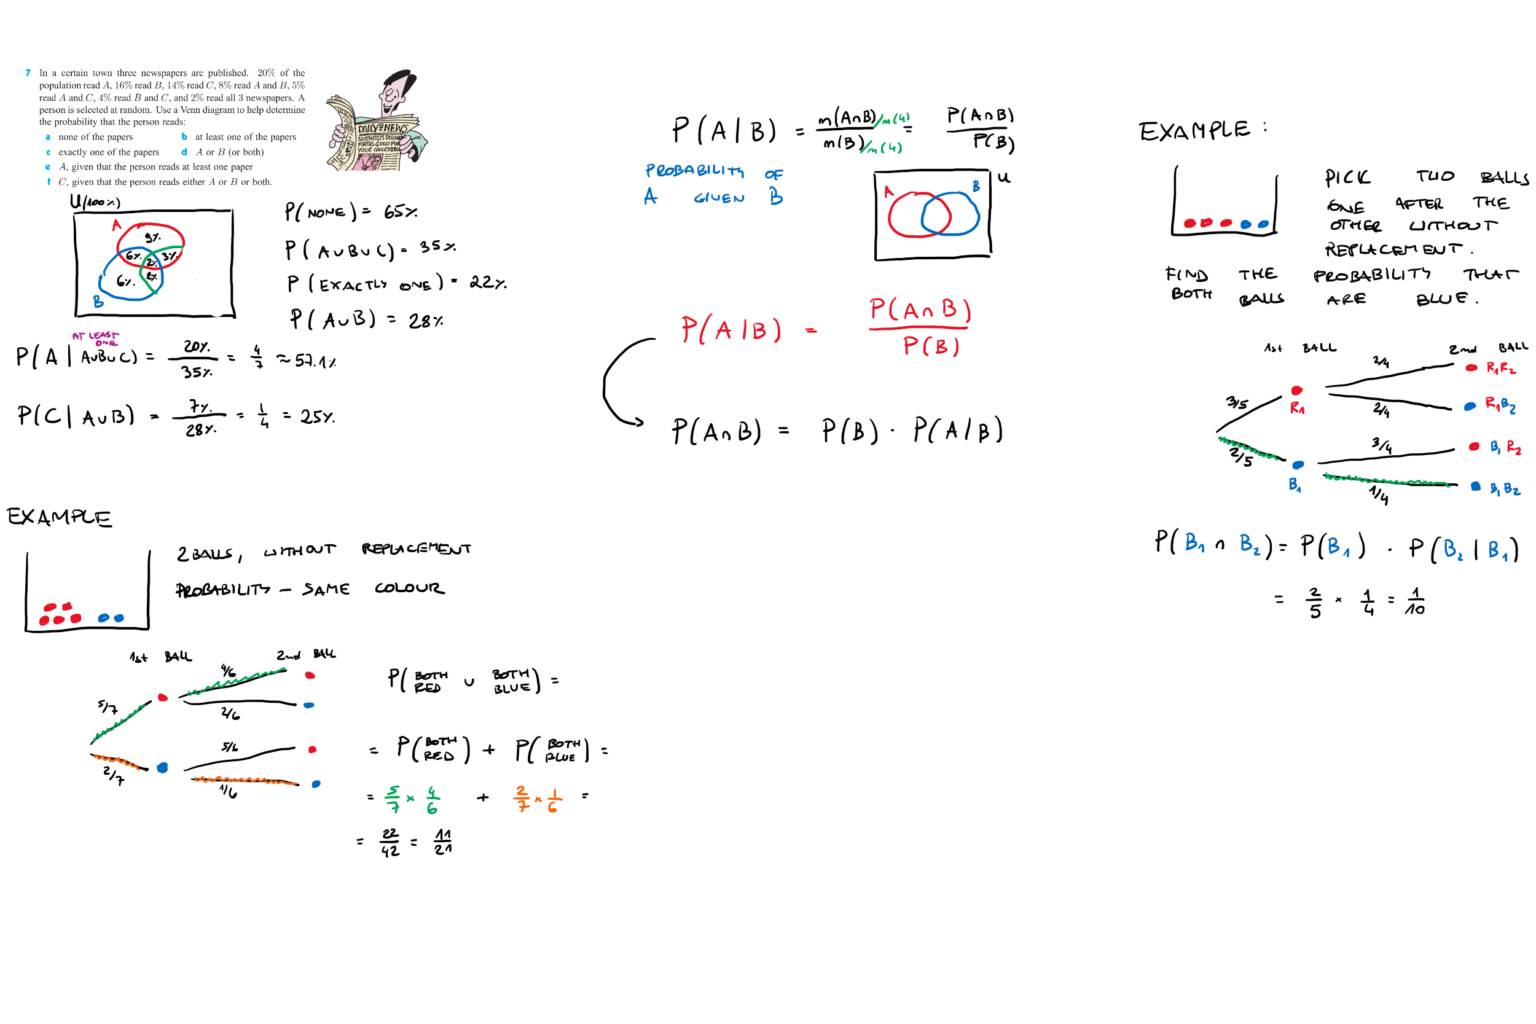 7 In a certain town three newspapers are published. 20% of the
population read A, 16% read B, 14% read C, 8% read A and B, 5%
read A and C, 4% read B and C, and 2% read all 3 newspapers. A
person is selected at random. Use a Venn diagram to help determine
the probability that the person reads:
a none of the papers b at least one of the papers
c exactly one of the papers d A or B (or both)
e A, given that the person reads at least one paper
f C, given that the person reads either A or B or both.
DAILY NEWS
U(100%)
A
9%
6% 2% 3%
2%
6%
B
P(NONE) = 65%
P(A∪B∪C) = 35%
P(EXACTLY ONE) = 22%
P(A∪B) = 28%
AT LEAST
ONE
P(A | A∪B∪C) = 20%/35% = 4/7 ≈ 57.1%
P(C | A∪B) = 7%/28% = 1/4 = 25%
EXAMPLE
2 BALLS, WITHOUT REPLACEMENT
PROBABILITY – SAME COLOUR
1st BALL 2nd BALL
5/7 4/6
2/6
2/7 5/6
1/6
P(BOTH RED ∪ BOTH BLUE) =
= P(BOTH RED) + P(BOTH BLUE) =
= 5/7 × 4/6 + 2/7 × 1/6 =
= 22/42 = 11/21
P(A|B) = n(A∩B)/n(U) / n(B)/n(U) = P(A∩B)/P(B)
PROBABILITY OF
A GIVEN B
A B U
P(A|B) = P(A∩B)/P(B)
P(A∩B) = P(B) · P(A|B)
EXAMPLE:
PICK TWO BALLS
ONE AFTER THE
OTHER WITHOUT
REPLACEMENT.
FIND THE PROBABILITY THAT
BOTH BALLS ARE BLUE.
1st BALL 2nd BALL
3/5 R₁ 2/4 R₁R₂
2/4 R₁B₂
2/5 B₁ 3/4 B₁R₂
1/4 B₁B₂
P(B₁ ∩ B₂) = P(B₁) · P(B₂ | B₁)
= 2/5 × 1/4 = 1/10